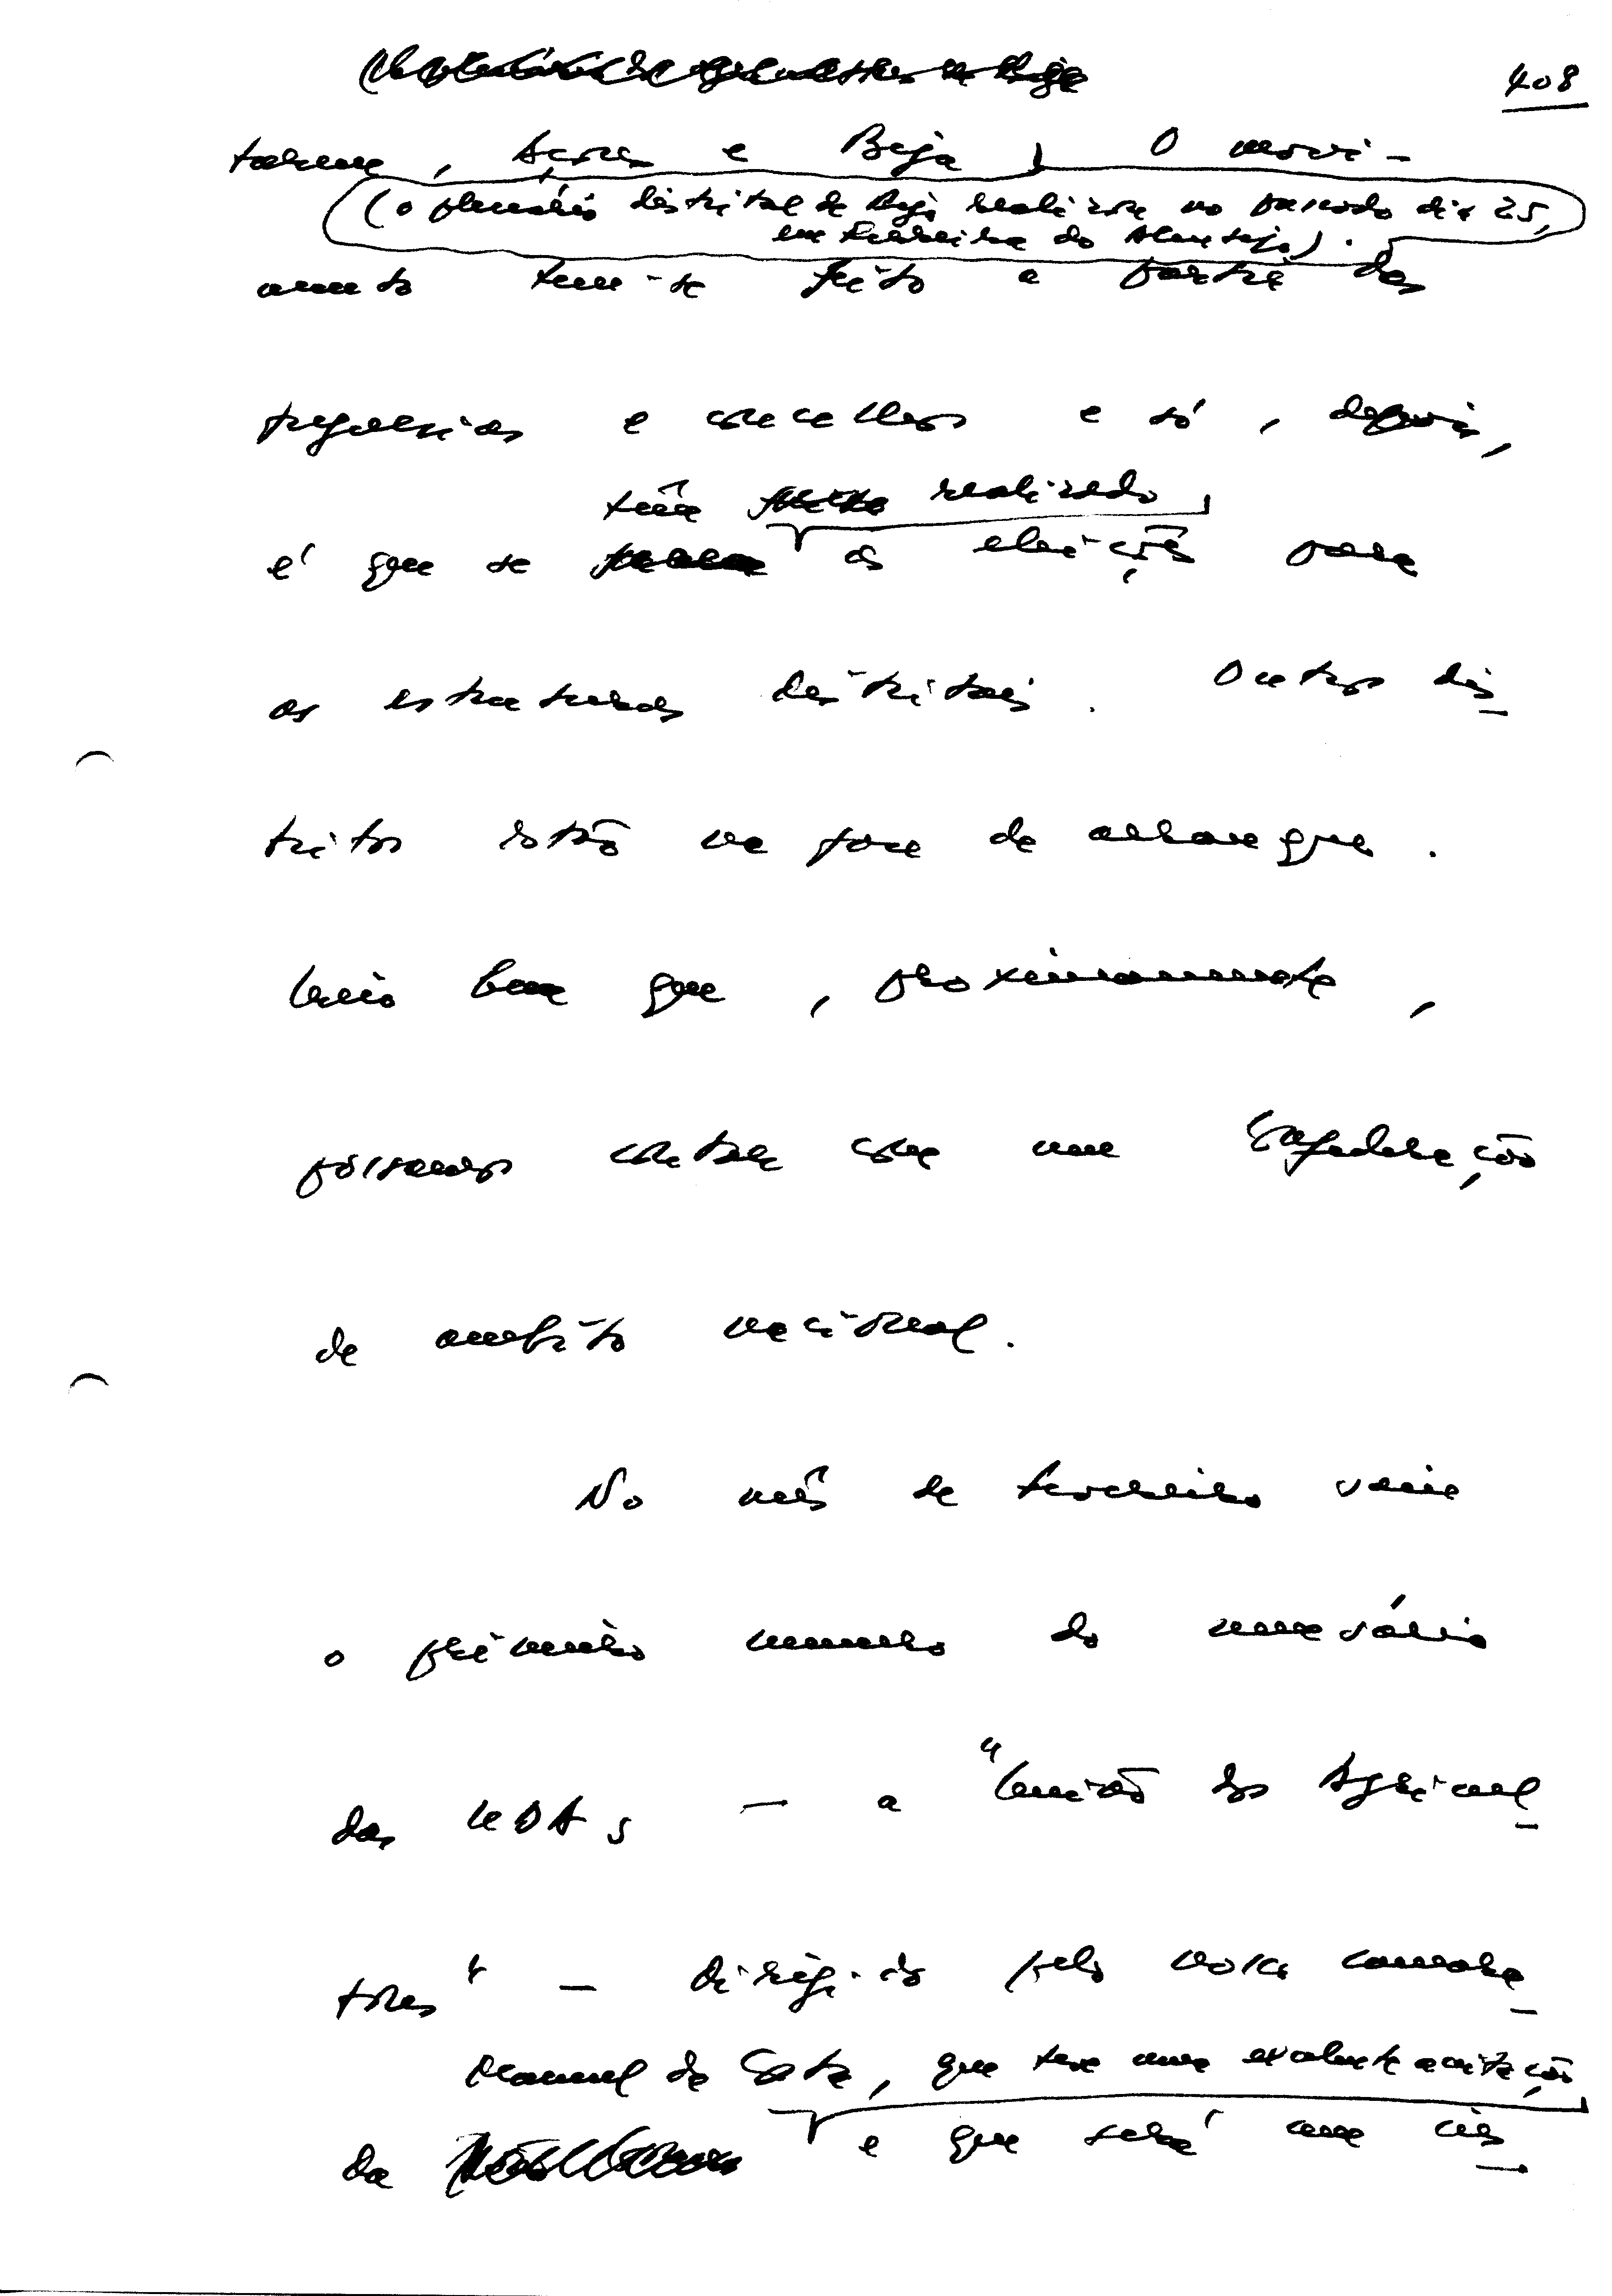 408
tarém, Açores e Beja. O movi-
(o plenário distrital de Beja realizou-se no passado dia 25,
em Ferreira do Alentejo).
mento tem-se feito a partir das
freguesias e concelhos e só, depois,
têm realizado
é que se as eleições para
as estruturas distritais. Outros dis-
tritos estão na fase de arranque.
bem que, proximamente,
possamos contar com uma Confederação
de ambito nacional.
No mês de Fevereiro saiu
o primeiro numero do mensário
das UDAs — a "União dos Agricul-
tores" — dirigido pelo nosso camara-
Manuel da Costa, que teve uma excelente aceitação
da e que será um ins-